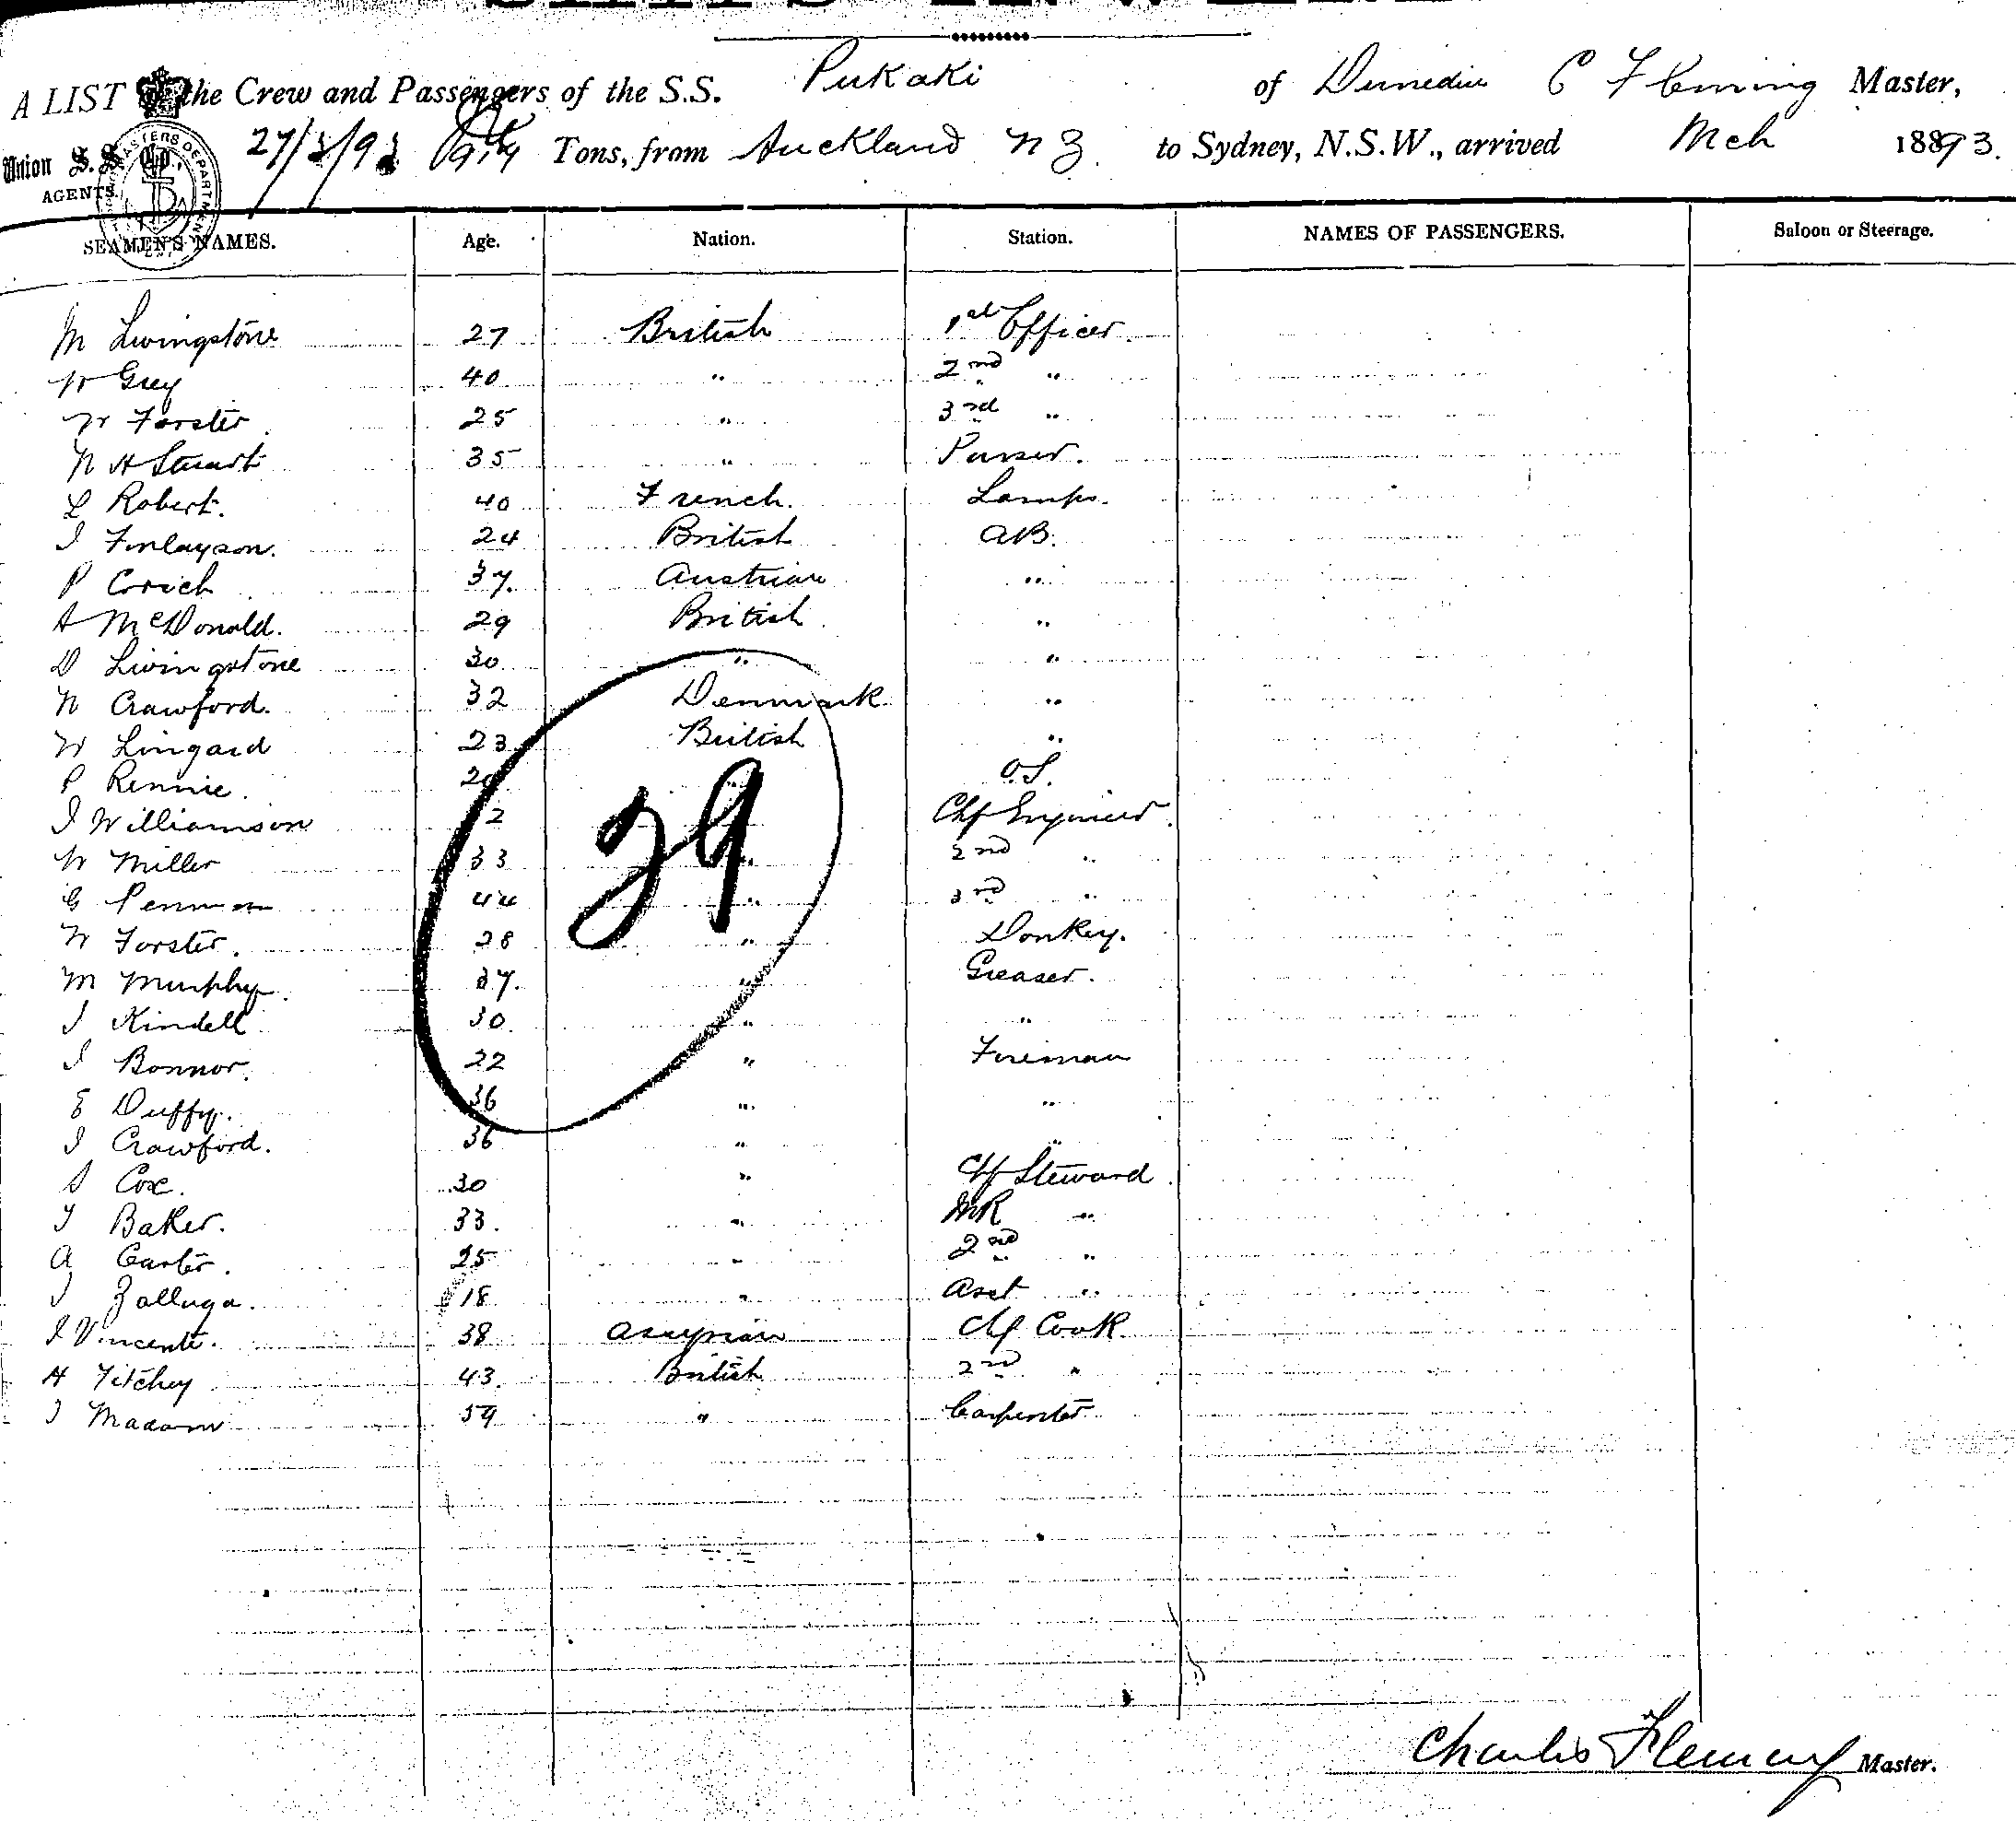 A LIST of the Crew and Passengers of the S.S. Pukaki of Dunedin C Fleming Master,
Union S.S. Co. 27/3/93 Tons, from Auckland N Z. to Sydney, N.S.W., arrived Mch 18893.
AGENTS.
SEAMEN'S NAMES. Age. Nation. Station. NAMES OF PASSENGERS. Saloon or Steerage.
M Livingstone 27 British 1st Officer
W Grey 40 " 2nd "
W Forster 25 " 3rd "
N H Stuart 35 " Purser.
L Robert. 40 French. Lamps.
J Finlayson. 24 British AB.
P Corich 37. Austrian "
A McDonald. 29 British "
D Livingstone 30 " "
N Crawford. 32 Denmark "
W Lingard 23 British "
P Rennie. O.S.
J Williamson 2 Chf Engineer.
W Miller 33 " 2nd "
G Penman 44 " 3rd "
29
W Forster. 28 " Donkey.
M Murphy. 37. " Greaser.
J Kindell 30. " "
J Bonnor. 22 " Fireman
E Duffy. 36 " "
J Crawford. 36 " "
S Cox. 30 " Chf Steward.
T Baker. 33. " "
A Carter. 25 " 2nd "
J Zalluga. 18 " Asst "
J Vincente. 38 Assyrian Chf Cook
H Fitchey 43. British 2nd "
J Madam 59 " Carpenter
Charles Fleming Master.